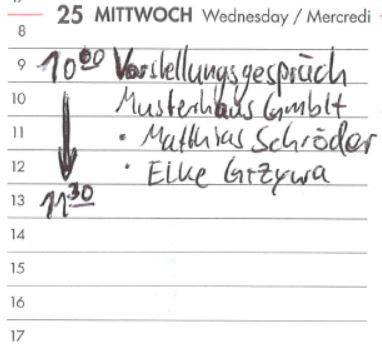 25 MITTWOCH Wednesday / Mercredi
8
9 10⁰⁰ Vorstellungsgespräch
10 Musterhaus GmbH
11 · Matthias Schröder
12 · Elke Grzywa
13 11³⁰
14
15
16
17